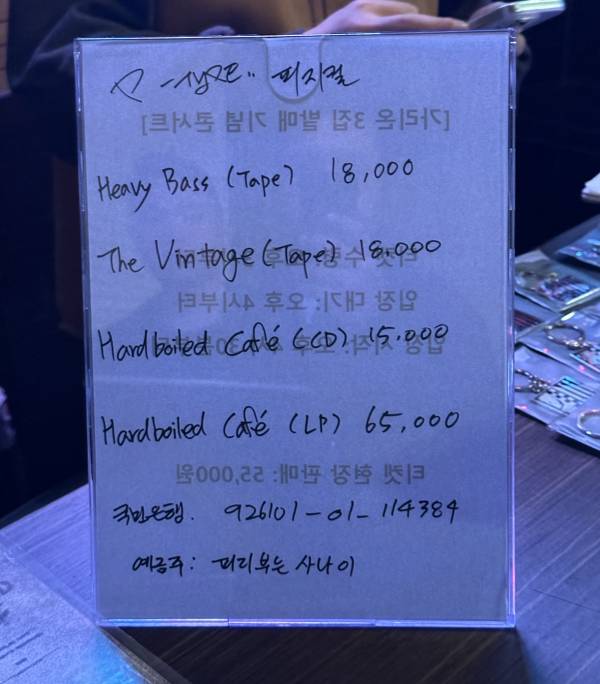 피지컬
[가리온 3집 발매 기념 콘서트]
Heavy Bass (Tape) 18,000
The Vintage (Tape) 18,000
티켓 수령: 오후
입장 대기: 오후 4시부터
Hardboiled Café (CD) 15,000
입장 시작: 오후 4시 30분부터
Hardboiled Café (LP) 65,000
티켓 현장 판매: 55,000원
국민은행. 926101-01-114384
예금주: 피리부는 사나이